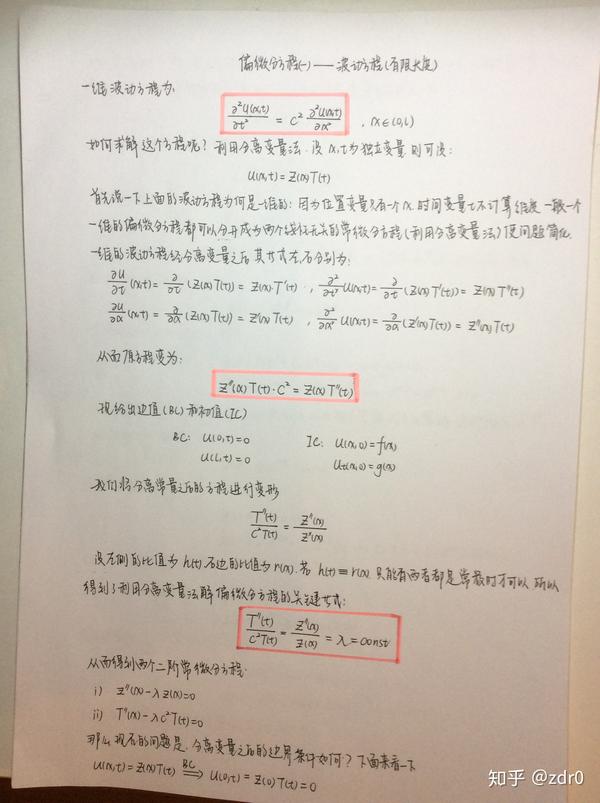 偏微分方程(一)——波动方程(有限长度)
一维波动方程为:
∂²U(x,t)/∂t² = C² ∂²U(x,t)/∂x² , x∈(0,L)
如何求解这个方程呢? 利用分离变量法. 设 x,t为独立变量 则可设:
U(x,t)=Z(x)T(t)
首先说一下上面的波动方程为何是一维的: 因为位置变量只有一个x. 时间变量t不计算维度 一般一个
一维的偏微分方程都可以分开成为两个线性无关的常微分方程(利用分离变量法)使问题简化.
一维的波动方程经分离变量之后 其式左右分别为:
∂U/∂t (x,t) = ∂/∂t (Z(x)T(t)) = Z(x)·T'(t) , ∂²/∂t² U(x,t) = ∂/∂t (Z(x)T'(t)) = Z(x)T''(t)
∂U/∂x (x,t) = ∂/∂x (Z(x)T(t)) = Z'(x)T(t) , ∂²/∂x² U(x,t) = ∂/∂x (Z'(x)T(t)) = Z''(x)T(t)
从而原方程变为:
Z''(x)T(t)·C² = Z(x)T''(t)
现给出边值(BC)和初值(IC)
BC: U(0,t)=0 IC: U(x,0)=f(x)
U(L,t)=0 Ut(x,0)=g(x)
我们将分离常量之后的方程进行变形
T''(t)/C²T(t) = Z''(x)/Z''(x)
设左侧的比值为h(t).右边的比值为r(x). 若 h(t)≡r(x). 只能有两者都是常数时才可以 所以
得到了利用分离变量法解偏微分方程的关键式:
T''(t)/C²T(t) = Z''(x)/Z(x) = λ = const
从而得到两个二阶常微分方程.
i) Z''(x)-λZ(x)=0
ii) T''(x)-λC²T(t)=0
那么现在的问题是. 分离变量之后的边界条件如何? 下面来看一下
U(x,t)=Z(x)T(t) BC⟹ U(0,t)=Z(0)T(t)=0
知乎 @zdr0